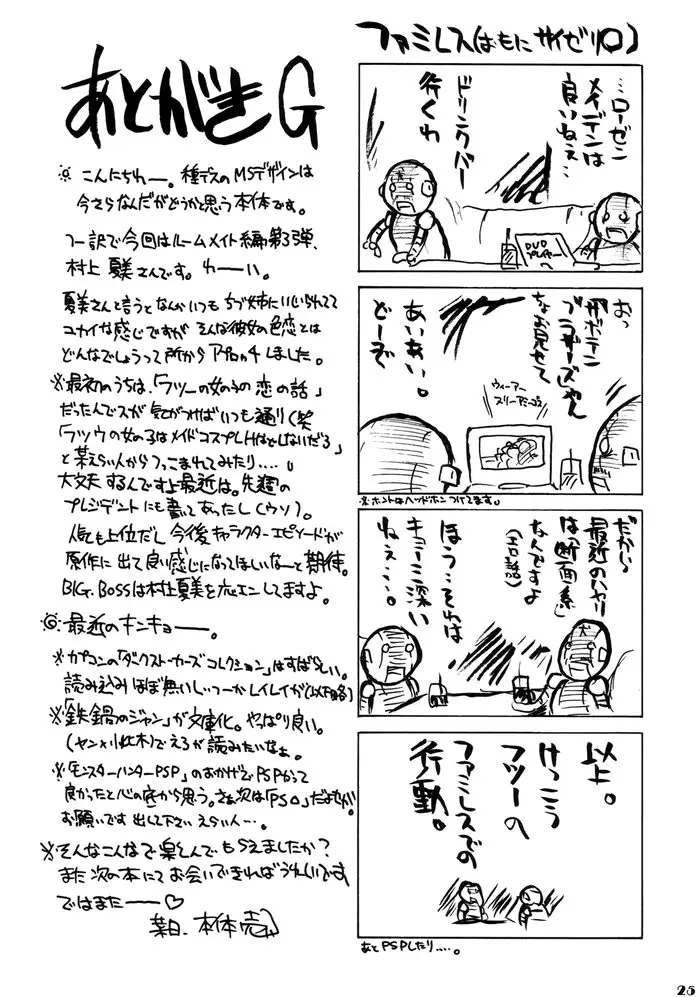 あとがきG
こんにちわー。種デスのMSデザインは
今さらなんだがどうかと思う本体です。
つー訳で今回はルームメイト編第3弾、
村上夏美さんです。わーい。
夏美さんと言うとなんかいつもちづ姉にいじられてて
ユカイな感じですがそんな彼女の色恋とは
どんなでしょうって所からアプローチしました。
※最初のうちは、「フツーの女の子の恋の話」
だったんでスが気がつけばいつも通り(笑
「フツウの女の子はメイドコスプレHはしないだろ」
と某えらい人からつっこまれてみたり‥‥。
大丈夫するんですよ最近は。先週の
プレジデントにも書いてあったし(ウソ)。
人気も上位だし今後キャラクターエピソードが
原作に出て良い感じになってほしいなーと期待。
BIG. BOSSは村上夏美を応エンしてますよ。
最近のキンキョー。
※カプコンの「ダークストーカーズコレクション」はすばらしい。
読み込みほぼ無いしっつーかレイレイが(以下略)
※「鉄鍋のジャン」が文庫化。やっぱり良い。
(ヤン×小此木)でえろが読みたいなぁ。
※「モンスターハンターPSP」のおかげでPSPかって
良かったと心の底から思う。さぁ次は「PSO」だよせがい
お願いです出して下さいえらい人…。
※そんなこんなで楽しんでもらえましたか?
また次の本にてお会いできればうれしいです
ではまたー♡
某日. 本体売
ファミレス(はもにサイゼリ○)
…ローゼン
メイデンは
良いねぇ…
ドリンクバー
行くわ
DVD
プレイヤー
へ
おっ
「サボテン
ブラザーズ」じゃん
ちょお見せて
あいあい。
どーぞ
ウィーアー
スリーアミーゴス
※ホントはヘッドホンつけてます。
だから、
最近のハヤリ
は「断面系」
なんですよ
(エロ話)
ほう‥それは
キョーミ深い
ねぇ…
以上。
けっこう
フツーの
ファミレスでの
行動。
あとPSPしたり‥‥。
25